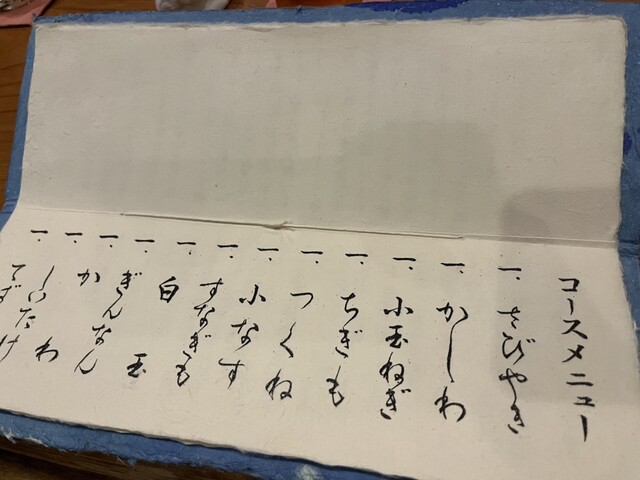 コースメニュー
一、さびやき
一、かしわ
一、小玉ねぎ
一、ちぎも
一、つくね
一、小なす
一、すなぎも
一、白玉
一、ぎんなん
一、かわ
一、しいたけ
一、